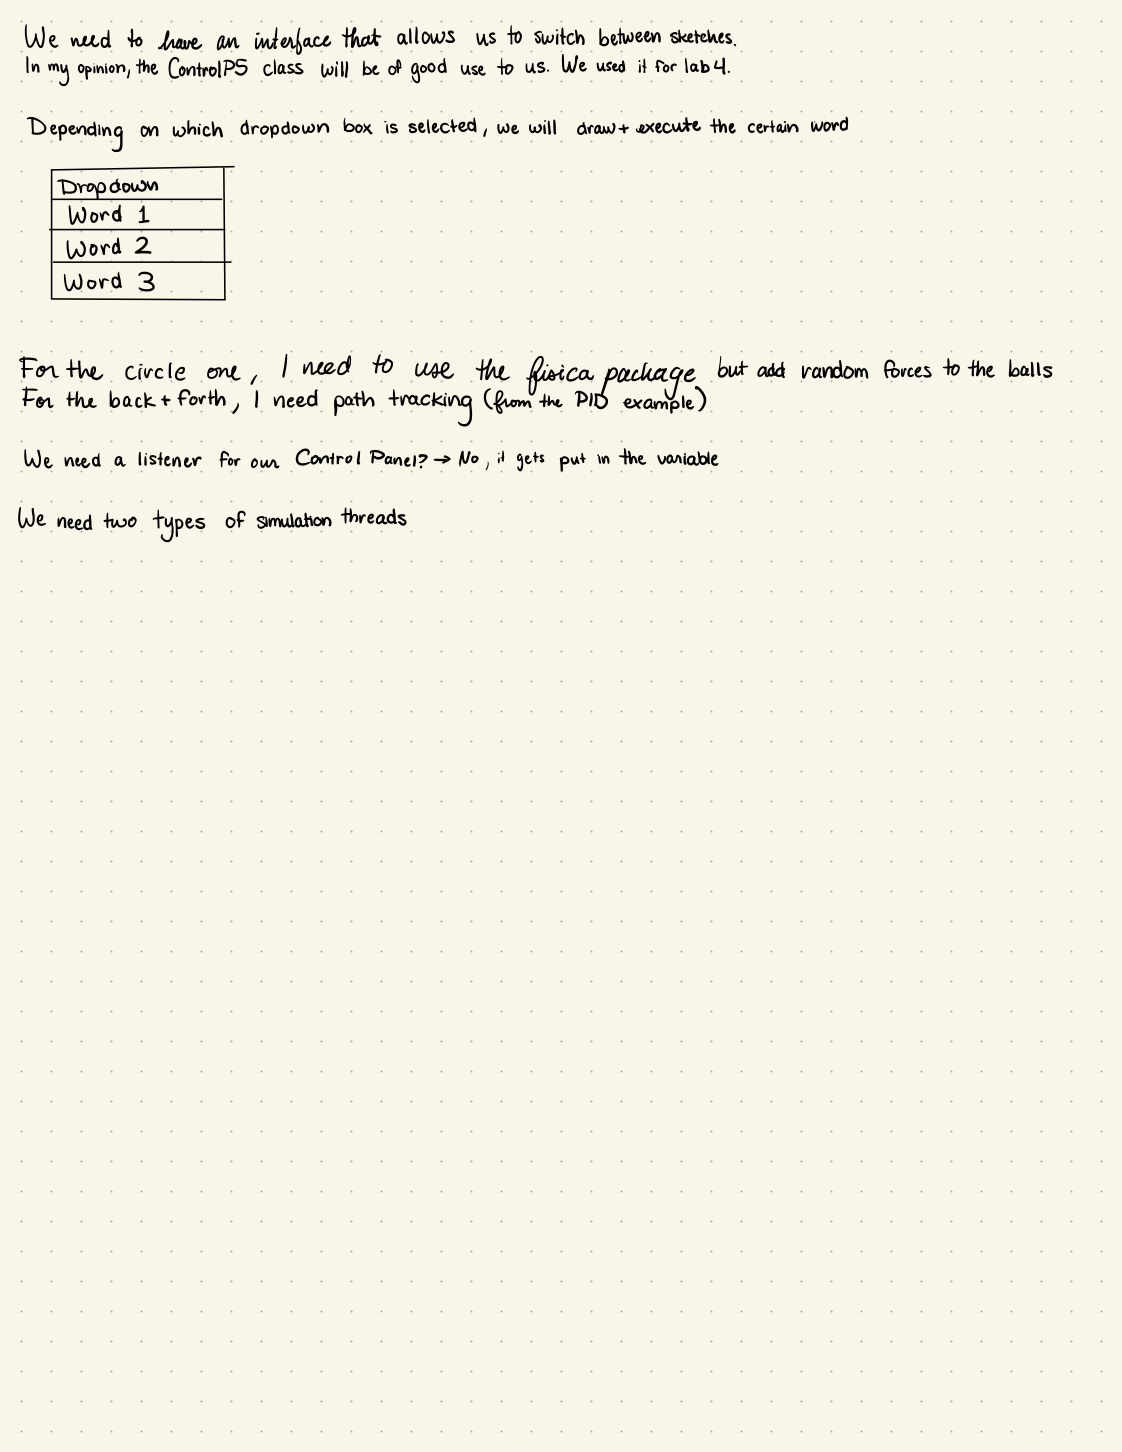 We need to have an interface that allows us to switch between sketches.
In my opinion, the ControlP5 class will be of good use to us. We used it for lab 4.
Depending on which dropdown box is selected, we will draw + execute the certain word
Dropdown
Word 1
Word 2
Word 3
For the circle one, I need to use the fisica package but add random forces to the balls
For the back + forth, I need path tracking (from the PID example)
We need a listener for our Control Panel? → No, it gets put in the variable
We need two types of simulation threads